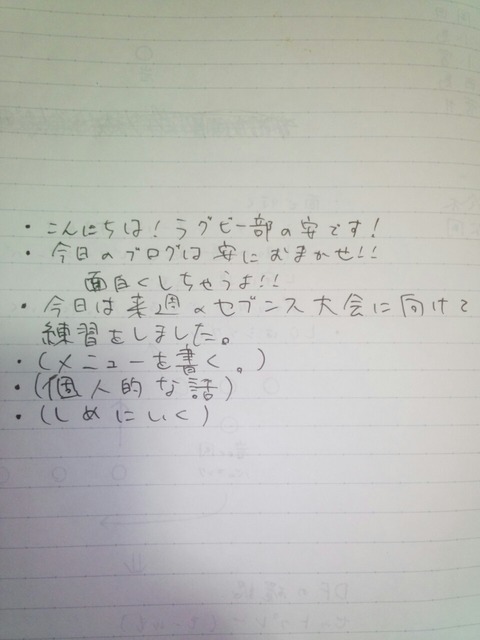 ・こんにちは！ラグビー部の安です！
・今日のブログは安におまかせ!!
面白くしちゃうよ!!
・今日は来週のセブンス大会に向けて
練習をしました。
・(メニューを書く。)
・(個人的な話)
・(しめにいく)
DFの確認